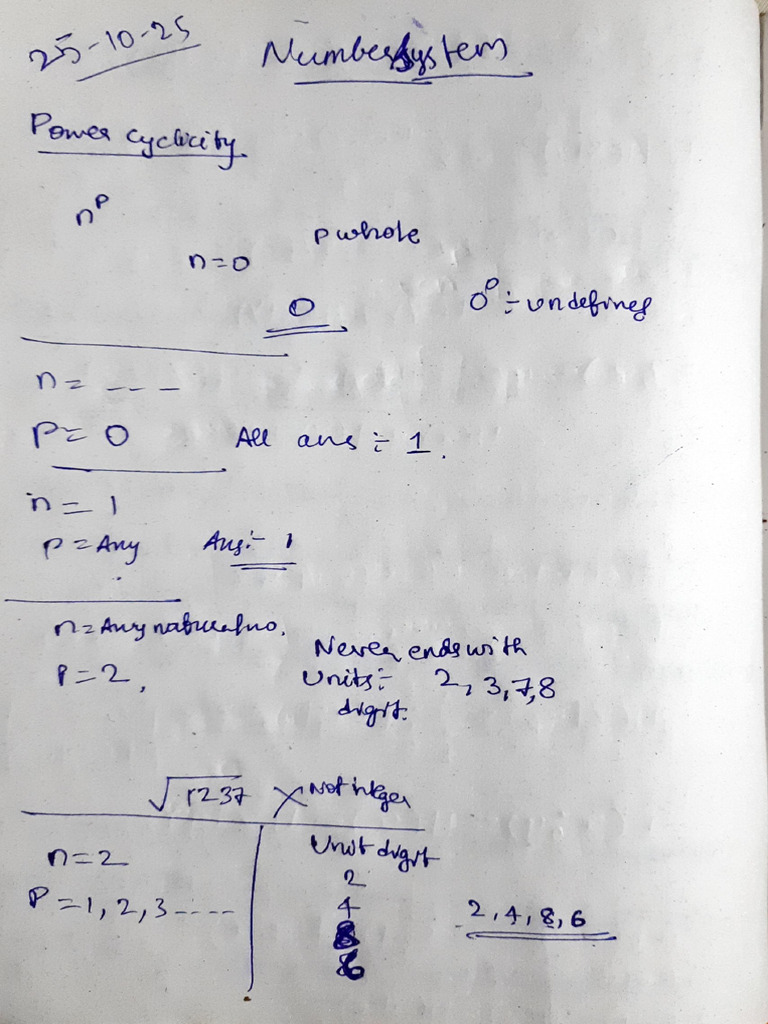 25-10-25
Number System
Power cyclicity
n^p
p whole
n=0
0
0^0 :- undefined
n= _ _ _
P= 0 All ans :- 1.
n= 1
p=Any Ans:- 1
n=Any natural no.
P=2, Never ends with
Units:- 2, 3, 7, 8
digit.
√1237 × Not integer
n=2
P=1, 2, 3 ----
Unit digit
2
4
8
6
2, 4, 8, 6